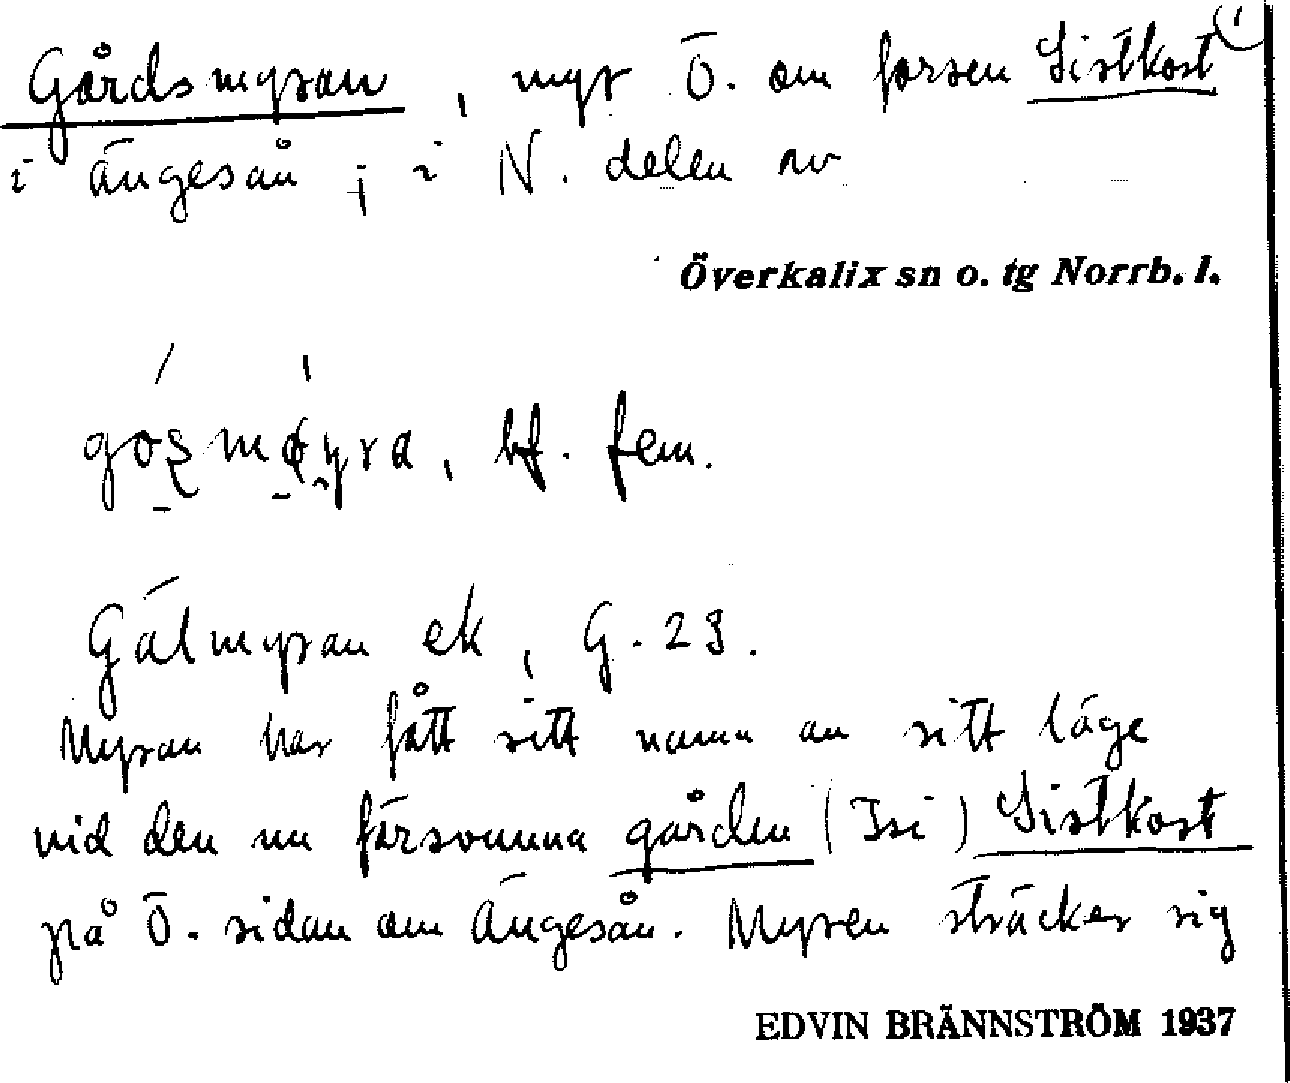 Gårdsmyran, myr Ö. om forsen Sistkost
i Ängesån; i N. delen av
Överkalix sn o. tg Norrb. l.
bf. fem.
Gålmyran ek, G. 23.
Myran har fått sitt namn av sitt läge
vid den nu försvunna gården (Isi) Sistkost
på Ö. sidan om Ängesån. Myren sträcker sig
EDVIN BRÄNNSTRÖM 1937